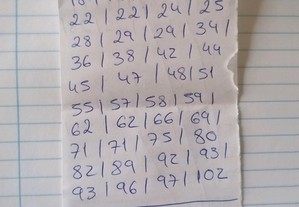 22 | 22 | 24 | 25
28 | 29 | 29 | 34 |
36 | 38 | 42 | 44
45 | 47 | 48 | 51
55 | 57 | 58 | 59 |
62 | 62 | 66 | 69 |
71 | 71 | 75 | 80
82 | 89 | 92 | 93 |
93 | 96 | 97 | 102